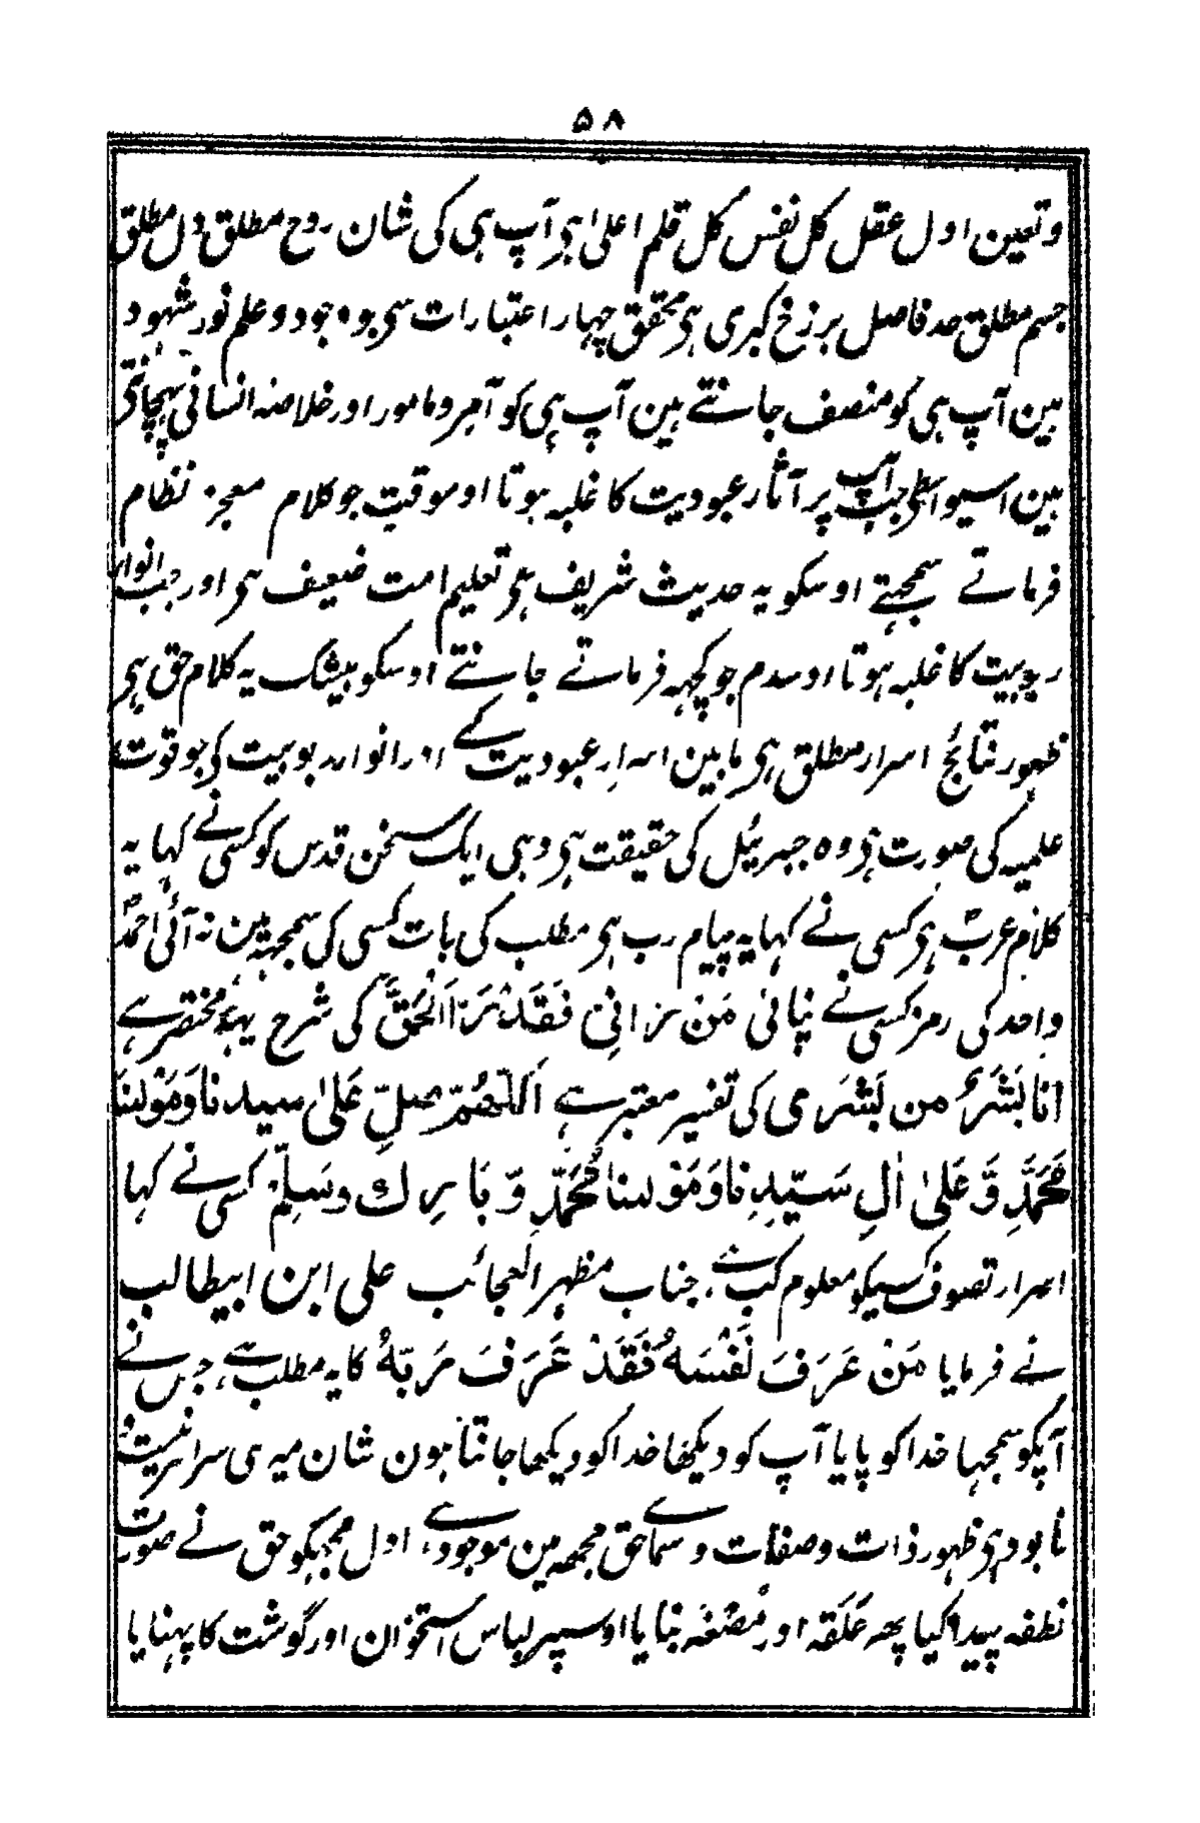 ۵۸
و تعین اول عقل کل نفس کل قلم اعلیٰ ہی آپ ہی کی شان روح مطلق دل مطلق
جسم مطلق حد فاصل برزخ کبری ہی محقق چہار اعتبارات سی بوہ جود و علم نور شہود
ہین آپ ہی کو منصف جانتے ہین آپ ہی کو آمر و مامور اور خلاصہ انسانی پہچانتی
ہین اسیواسطی جب آپ پر آثار عبودیت کا غلبہ ہوتا اوسوقت جو کلام معجز نظام
فرماتے سمجہتے اوسکو یہ حدیث شریف ہی تعلیم امت ضعیف ہی اور جب انوار
ربوبیت کا غلبہ ہوتا اوسدم جو کچہہ فرماتے جانتے اوسکو بیشک یہ کلام حق ہی
ظہور نتائج اسرار مطلق ہی مابین اسرار عبودیت کے اور انوار ربوبیت کی جو قوت
علمیہ کی صورت ہی وہ جبرئیل کی حقیقت ہی وہی ایک سخن قدس کو کسی نے کہا یہ
کلام عرب ہی کسی نے کہا یہ پیام رب ہی مطلب کی بات کسی کی سمجہہ مین نہ آئی احمد
واحد کی رمز کسی نے نپائی مَنْ رَاٰنِیْ فَقَدْ رَاَ الْحَقَّ کی شرح یہہ مختصر ہے
انا بَشَرٌ من بَشَرِی کی تفسیر معتبر ہے اَللّٰھُمَّ صلِّ عَلیٰ سیدنا وَمَوْلٰنَا
مُحَمَّدٍ وَّعَلیٰ اٰلِ سَیِّدِنَا وَمَوْلٰنَا مُحَمَّدٍ وَّبَارِك وسَلِّمْ کسی نے کہا
اسرار تصوف کسیکو معلوم کب ہے، جناب مظہر العجائب علی ابن ابیطالب
نے فرمایا مَنْ عَرَفَ نَفْسَهُ فَقَدْ عَرَفَ رَبَّهُ کا یہ مطلب ہے، جس نے
آپکو سمجہا خدا کو پایا آپ کو دیکھا خدا کو دیکھا جانتا ہون شان میری سراسر نیست و
نابود ہی ظہور ذات وصفات و سماے حق مجہہ مین موجود ہے، اول مجہکو حق نے صورت
نطفہ پیدا کیا پھر عَلَقَہ اور مُضْغَہ بنایا اوسپر لباس استخوان اور گوشت کا پہنایا